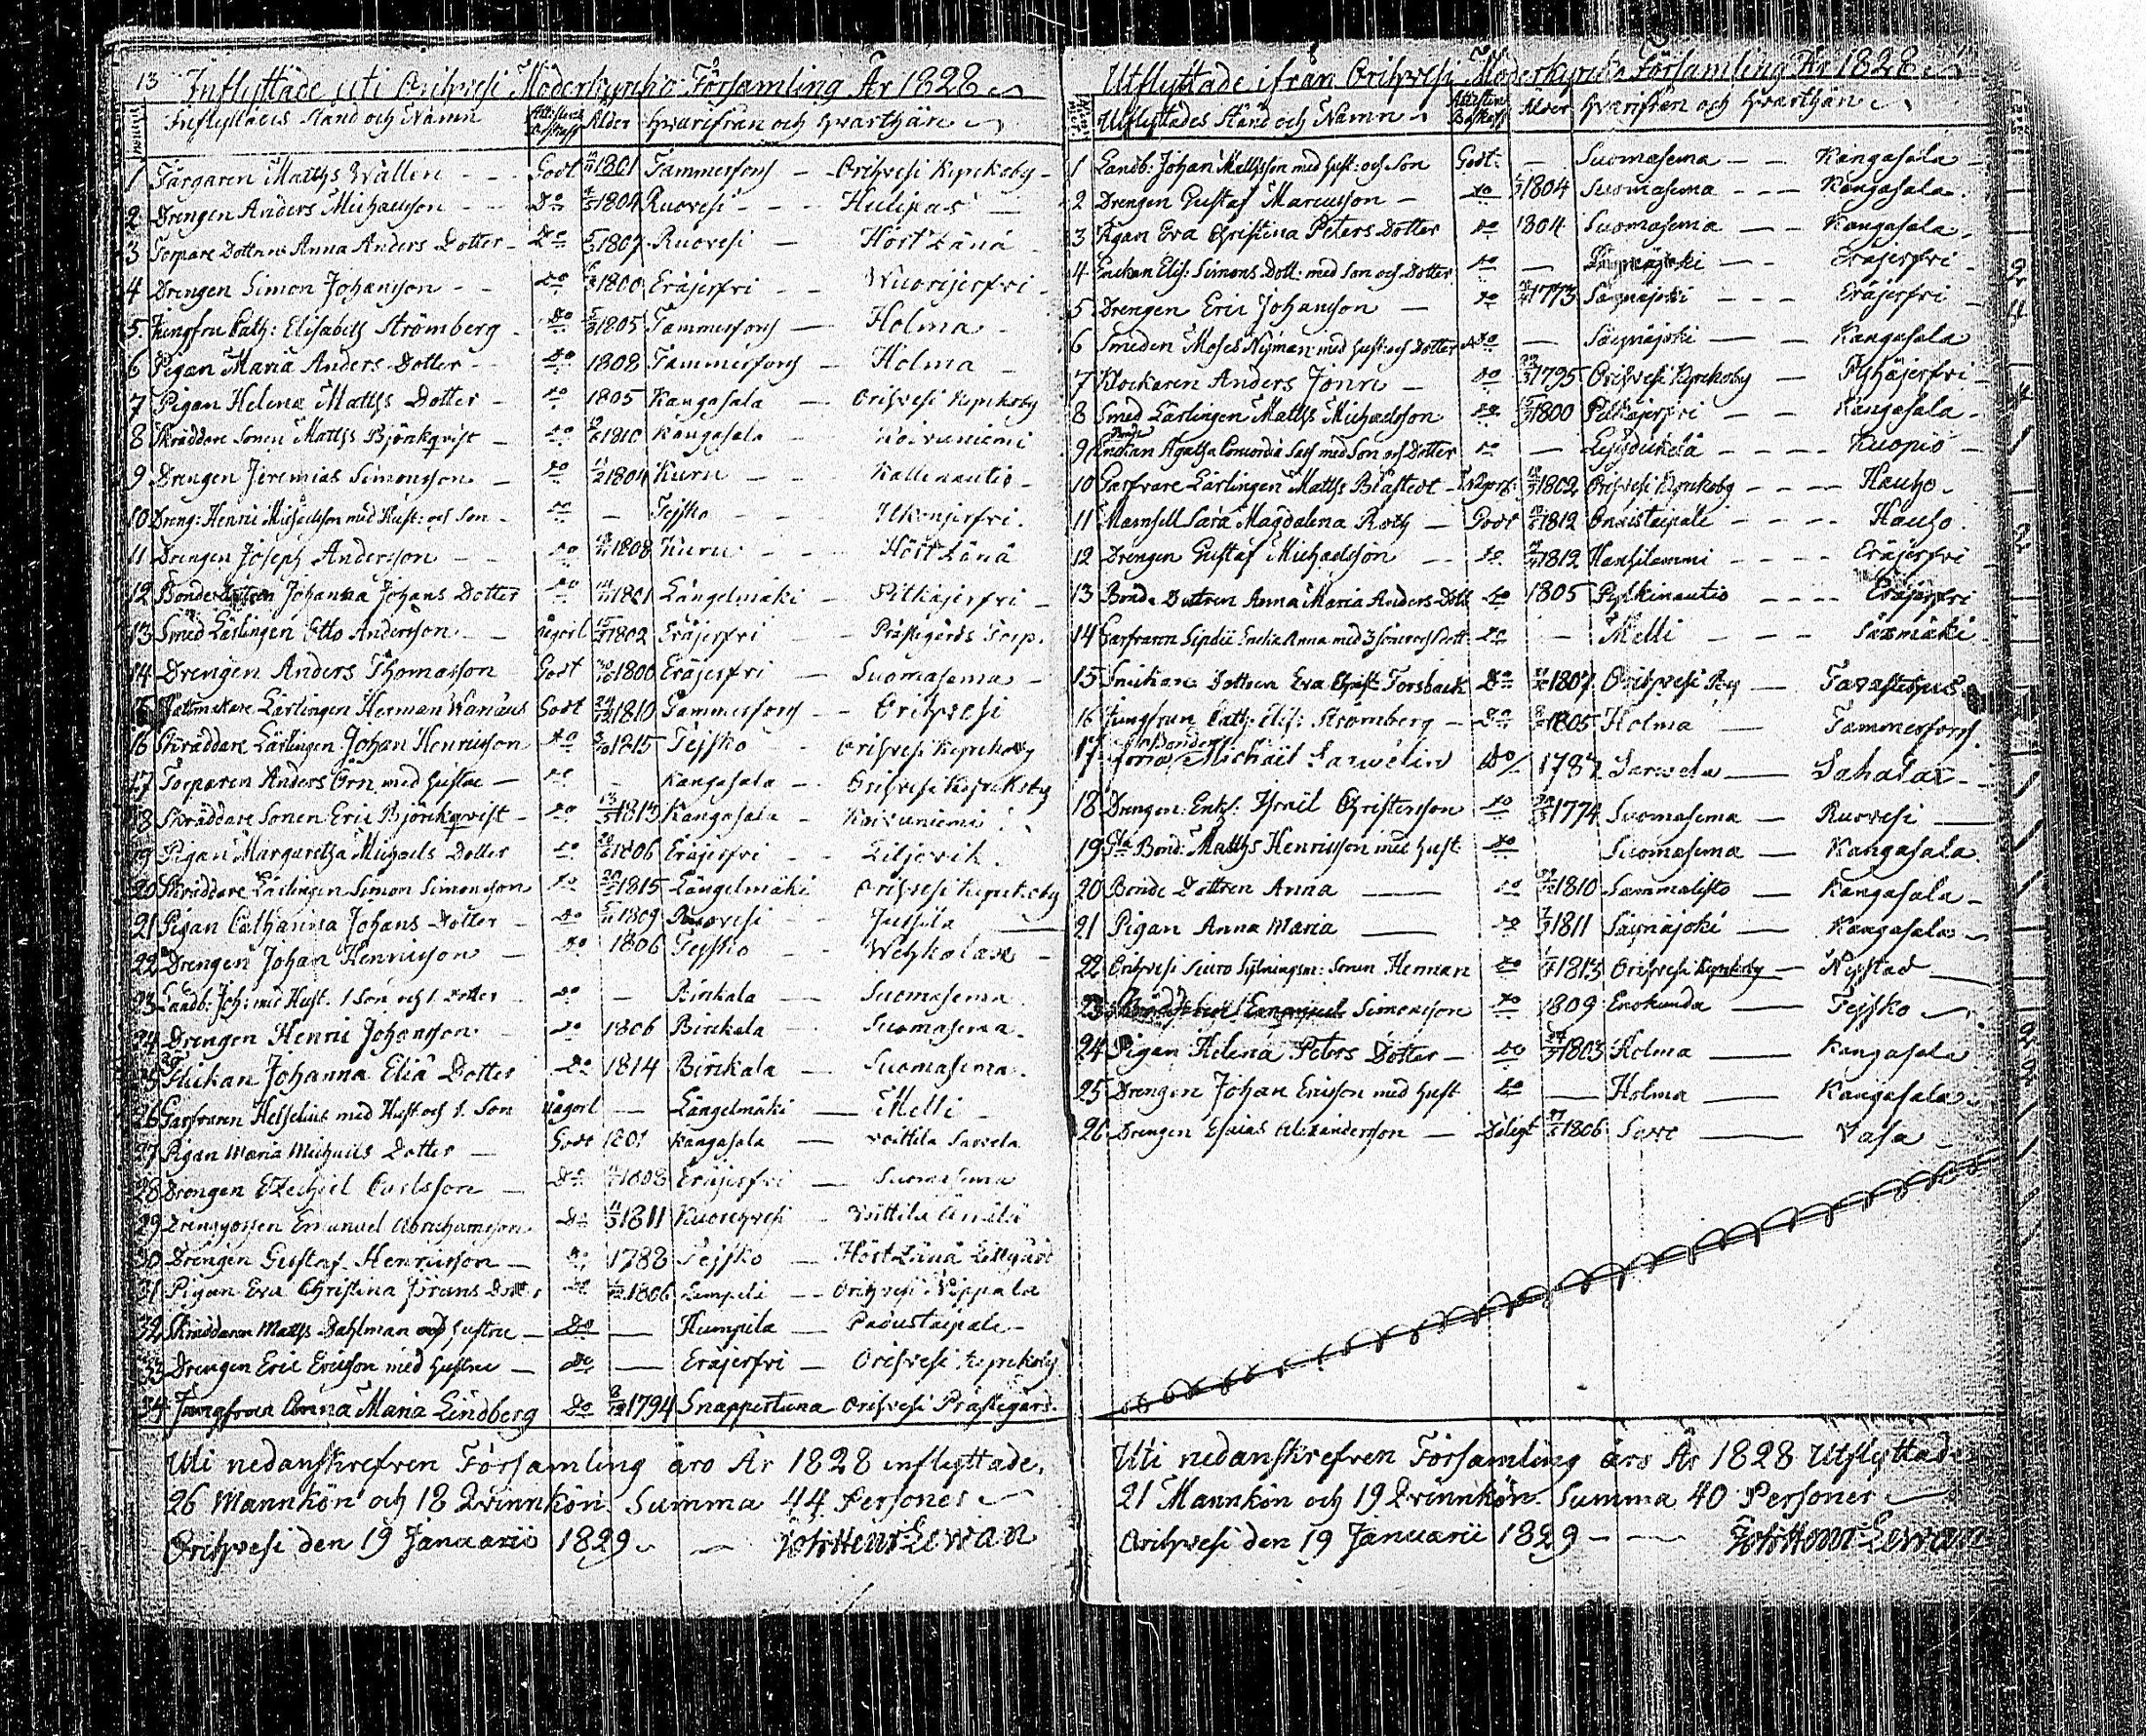 13 Inflyttade uti Orihvesi Moderkyrko Församling År 1828
Inflyttades Stånd och Namn Attestens Beskaff Ålder Hvarifrån och Hvarthän
1 Färgaren Matths Wallen Godt 1801 Tammerfors Orihvesi Kyrckoby
2 Drengen Anders Michaelsson Do 1804 Ruovesi Hulipas
3 Torpare Dottren Anna Anders Dotter Do 1807 Ruovesi Hört Länä
4 Drengen Simon Johansson Do 1800 Eräjerfvi Wuorijerfvi
5 Jungfru Cath: Elisabeth Strömberg Do 1805 Tammerfors Holma
6 Pigan Maria Anders Dotter Do 1808 Tammerfors Holma
7 Pigan Helena Matths Dotter Do 1805 Kangasala Orihvesi Kyrckoby
8 Skräddare Sonen Matths Björkqvist Do 1810 Kangasala Koivuniemi
9 Drengen Jeremias Simonsson Do 1804 Kuru Kallenautio
10 Dreng: Henric Michelsson med Hust: och Son Do – Tejsko Ukonjerfvi
11 Drengen Joseph Andersson Do 1808 Kuru Hört Länä
12 Bonde Johanna Johans Dotter Do 1801 Längelmäki Pitkäjerfvi
13 Smed Lärlingen Otto Andersson någorl 1802 Eräjerfvi Prästegårds Torp.
14 Drengen Anders Thomasson Godt 1800 Eräjerfvi Suomasema
15 Hattmakare Lärlingen Herman Wanaeus Godt 1810 Tammerfors Orihvesi
16 Skräddare Lärlingen Johan Henricsson Do 1815 Tejsko Orihvesi Kyrckoby
17 Torparen Anders Örn med Hustru Do – Kangasala Orihvesi Kyrckoby
18 Skräddare Sonen Eric Björckqvist Do 1813 Kangasala Koivuniemi
19 Pigan Margaretha Michaels Dotter Do 1806 Eräjerfvi Liljevik
20 Skräddare Lärlingen Simon Simonsson Do 1815 Längelmäki Orihvesi Kyrckoby
21 Pigan Catharina Johans Dotter Do 1809 Ruovesi Jussila
22 Drengen Johan Henricsson Do 1806 Tejsko Wehkalax
23 Landb: Joh: med Hust. 1 Son och 1. Dotter Do – Birckala Suomasema
24 Drengen Henric Johansson Do 1806 Birckala Suomasema
25 Flickan Johanna Eliä Dotter Do 1814 Birckala Suomasema
26 Garfvaren Hesselius med Hust och 1. Son någorl – Längelmäki Melli
27 Pigan Maria Michaels Dotter Godt 1801 Kangasala Voittila Sarvela
28 Drengen Ezechiel Carlsson Do 1808 Eräjerfvi Suomasema
29 Drenggossen Emanuel Abrahamsson Do 1811 Kuorehvesi Voittila Anila
30 Drengen Gustaf Henricsson Do 1788 Tejsko Hört Länä Lillgård
31 Pigan Eva Christina Jörans Dott: Do 1806 Lempele Orihvesi Nippala
32 Skräddaren Matths Dahlman och Hustru Do – Humpila Påoustaipale
33 Drengen Eric Ericsson med Hustru Do – Eräjerfvi Orihvesi Kyrckoby
34 Jungfrun Anna Maria Lindberg Do 1794 Snappertuna Orihvesi Prästegård
Uti nedanskrefven Församling äro År 1828 inflyttade,
26 Mannkön och 18 Qvinnkön. Summa 44 Personer
Orihvesi den 19 Januarii 1829. Joh: Henr: Lewan
Utflyttade ifrån Orihvesi Moderkyrcko Församling År 1828
Utflyttades Stånd och Namn Attestens Beskaff Ålder Hvarifrån och Hvarthän
1 Landb: Johan Mattsson med Hust: och Son Godt – Suomasema Kangasala
2 Drengen Gustaf Marcusson Do 1804 Suomasema Kangasala
3 Pigan Eva Christina Peters Dotter Do 1804 Suomasema Kangasala
4 Enckan Elis: Simons Dott: med Son och Dotter Do – Säynäjoki Eräjerfvi
5 Drengen Eric Johansson Do 1773 Säynäjoki Eräjerfvi
6 Smeden Moses Nyman med Hust och Dotter Do – Säynäjoki Kangasala
7 Klockaren Anders Jonn Do 1795 Orihvesi Kyrckoby Pyhäjerfvi
8 Smed Lärlingen Matths Michaelsson Do 1800 Pitkäjerfvi Kangasala
9 Enckan Agatha Concordia med Son och Dotter Do – Kuopio
10 Garfvare Lärlingen Matths Blåstedt 1802 Orihvesi Kyrckoby Hauho
11 Mamsell Sara Magdalena Roth Godt 1812 Onnistaipale Hauho
12 Drengen Gustaf Michaelsson Do 1812 Hansilammi Eräjerfvi
13 Bonde Dottren Anna Maria Anders Dott Do 1805 Pyckinautio Eräjerfvi
14 Garfvaren Enckia Anna med 3 Söner och Dott Do – Melli Säxmäki
15 Snickare Dottren Eva Christ: Forsback Do 1807 Orihvesi By Tavastehus
16 Jungfrun Cath: Elis: Strömberg Do 1805 Holma Tammerfors
17 förra Bonden Michaël Sarwelin Do 1787 Sarvela Sahalax
18 Drengen Enkl: Israël Christersson Do 1774 Suomasema Ruovesi
19 Bond: Matths Henricsson med Hust Do Suomasema Kangasala
20 Bonde Dottren Anna Do 1810 Sammalisto Kangasala
21 Pigan Anna Maria Do 1811 Säynäjoki Kangasala
22 Orihvesi Sonen Herman Do 1813 Orihvesi Kyrckoby Nystad
23 Emanuel Simonsson Do 1809 Enokunda Tejsko
24 Pigan Helena Peters Dotter Do 1803 Holma Kangasala
25 Drengen Johan Ericsson med Hust Do – Holma Kangasala
26 Drengen Esaias Alexandersson Dåligt 1806 Vasa
Uti nedanskrefven Församling äro År 1828 Utflyttade
21 Mannkön och 19 Qvinnkön. Summa 40 Personer
Orihvesi den 19 Januarii 1829 Joh: Henr: Lewan